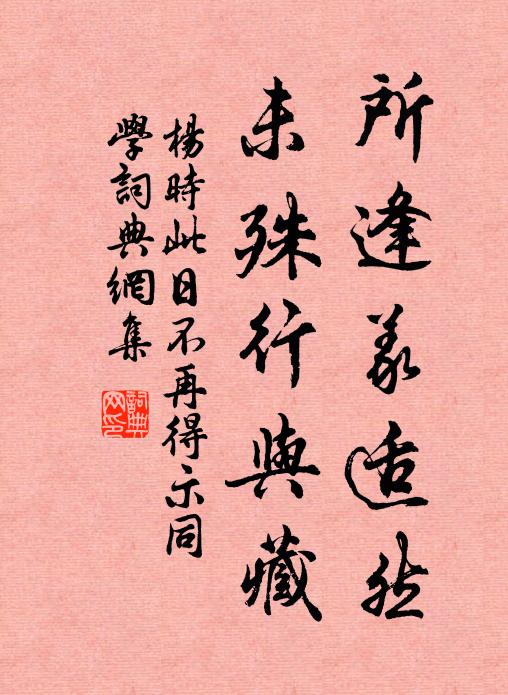 所逢義适然
未殊行與藏
楊時此日不再得示同
學詞典網集
詞典
网印